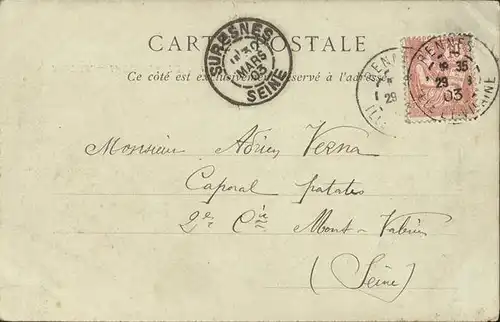 CARTE POSTALE
Ce côté est exclusivement réservé à l'adresse
SURESNES
30
MARS
03
SEINE
RENNES
29
RENNES
16 35
29
03
Monsieur Adrien Verna
Caporal patates
2e Cie Mont-Valérien
(Seine)